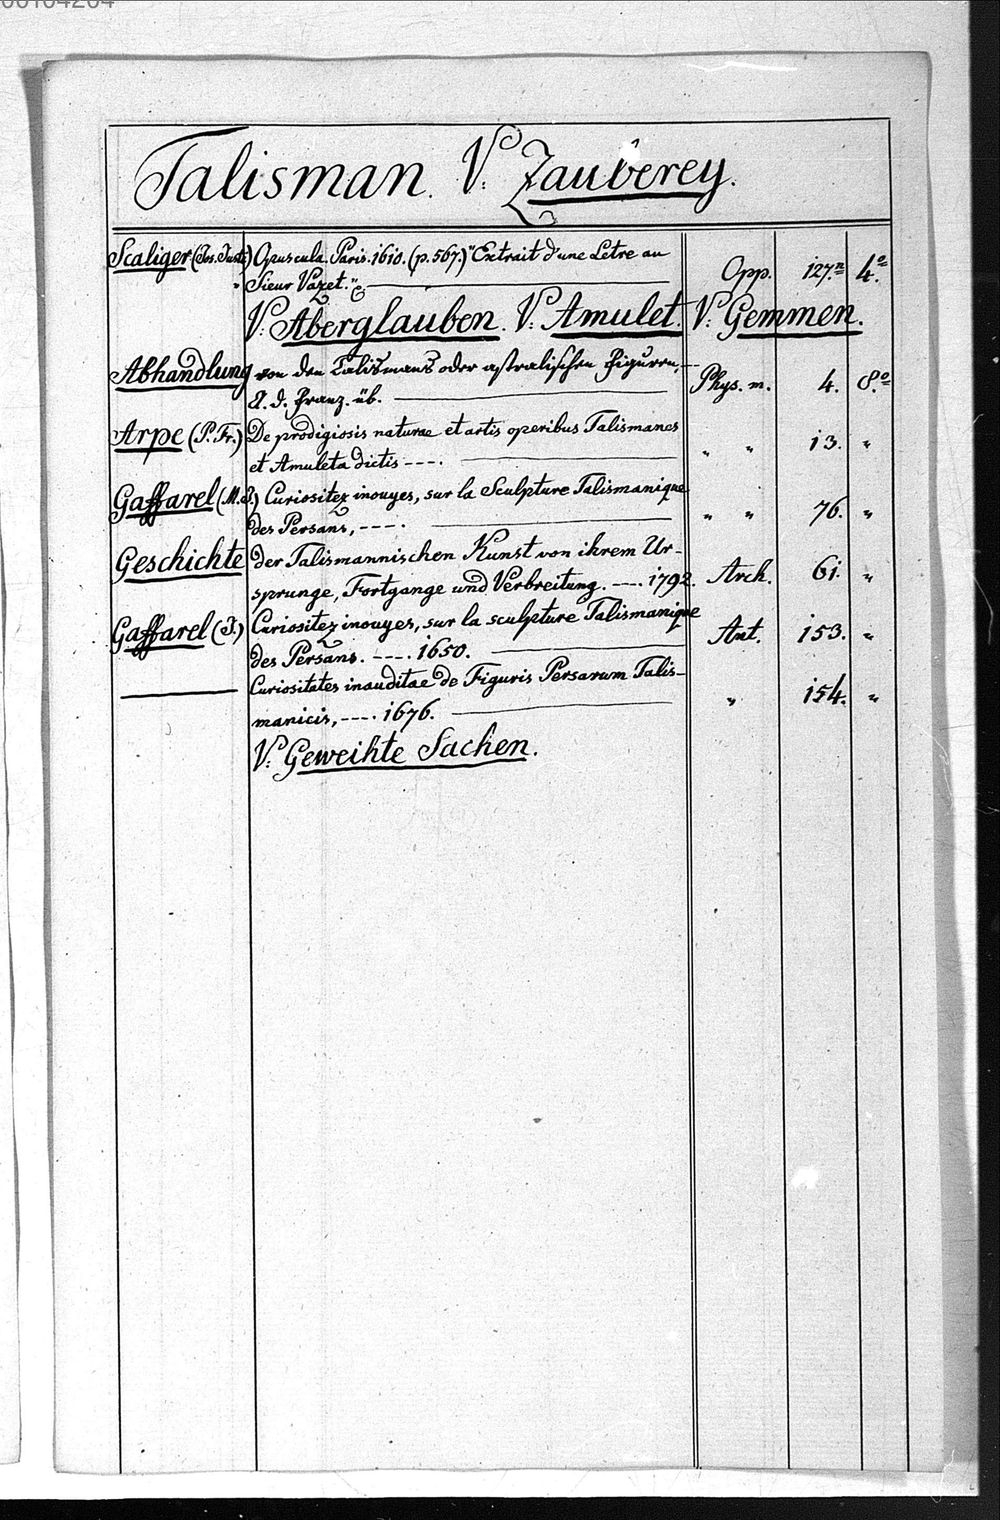 Talisman. V: Zauberey.
Scaliger (Jos. Juste) Opuscula. Paris. 1610. (p. 567.) "Extrait d'une Letre au
" Sieur Vazet." Opp. 127.n 4.o
V: Aberglauben. V: Amulet. V: Gemmen.
Abhandlung von den Talismans oder astralischen Figuren, --
A. d. Franz. üb. Phys. m. 4. 8.o
Arpe (P. Fr.) De prodigiosis naturae et artis operibus Talismanes
et Amuleta dictis ---. " " 13. "
Gaffarel (M. J.) Curiositez inouyes, sur la Sculpture Talismanique
des Persans, ---. " " 76. "
Geschichte der Talismannischen Kunst von ihrem Ur-
sprunge, Fortgange und Verbreitung. ---. 1792. Arch. 61. "
Gaffarel (J.) Curiositez inouyes, sur la sculpture Talismanique
des Persans. ---. 1650. Ant. 153. "
Curiositates inauditae de Figuris Persarum Talis-
manicis, ---. 1676. " 154. "
V: Geweihte Sachen.